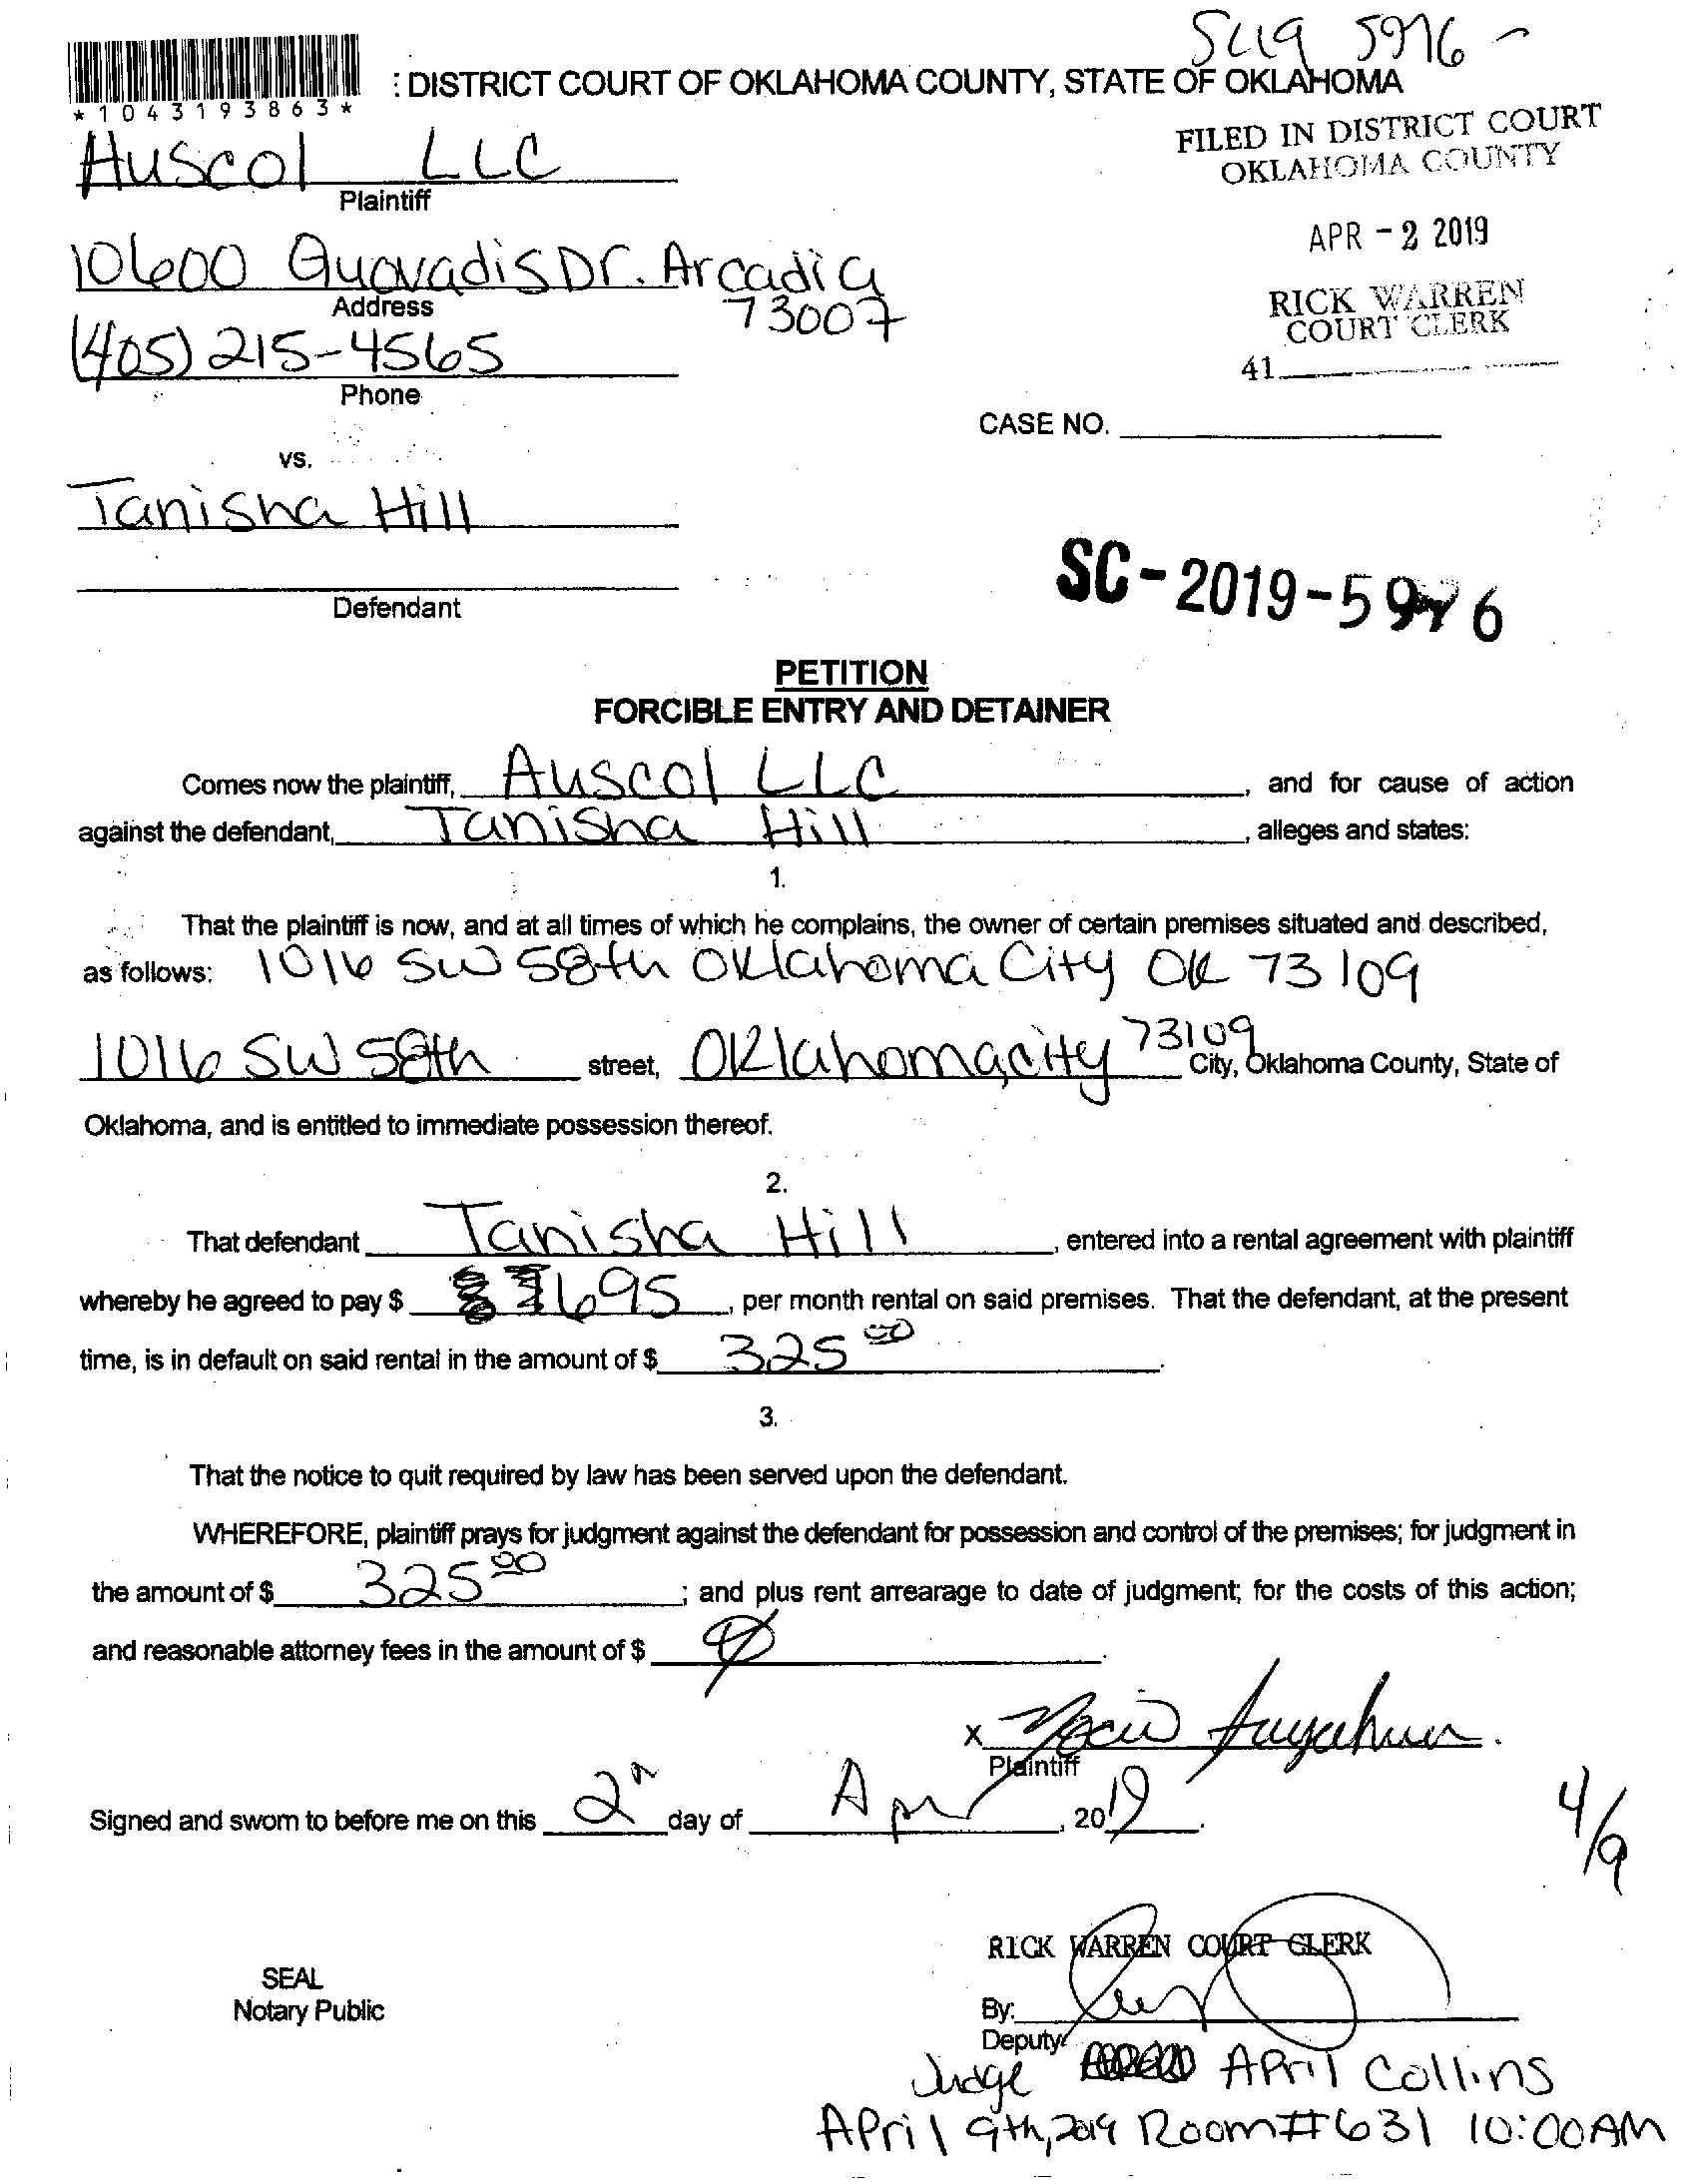 SC19 5976 -
*1043193863*
: DISTRICT COURT OF OKLAHOMA COUNTY, STATE OF OKLAHOMA
FILED IN DISTRICT COURT
OKLAHOMA COUNTY
Auscol LLC
Plaintiff
APR - 2 2019
10600 Quovadis Dr. Arcadia
73007
Address
RICK WARREN
COURT CLERK
(405) 215-4565
41
Phone
CASE NO.
vs.
Tanisha Hill
Defendant
SC-2019-5976
PETITION
FORCIBLE ENTRY AND DETAINER
Comes now the plaintiff, Auscol LLC, and for cause of action
against the defendant, Tanisha Hill, alleges and states:
1.
That the plaintiff is now, and at all times of which he complains, the owner of certain premises situated and described,
as follows: 1016 SW 58th Oklahoma City OK 73109
1016 SW 58th street, Oklahoma city 73109 City, Oklahoma County, State of
Oklahoma, and is entitled to immediate possession thereof.
2.
That defendant Tanisha Hill, entered into a rental agreement with plaintiff
whereby he agreed to pay $ 695, per month rental on said premises. That the defendant, at the present
time, is in default on said rental in the amount of $ 325 00.
3.
That the notice to quit required by law has been served upon the defendant.
WHEREFORE, plaintiff prays for judgment against the defendant for possession and control of the premises; for judgment in
the amount of $ 325 00; and plus rent arrearage to date of judgment; for the costs of this action;
and reasonable attorney fees in the amount of $ Ø.
X
Plaintiff
Signed and sworn to before me on this 2n day of Apr, 2019.
4/9
RICK WARREN COURT CLERK
SEAL
Notary Public
By:
Deputy
Judge APril Collins
APril 9th, 2019 Room #631 10:00AM